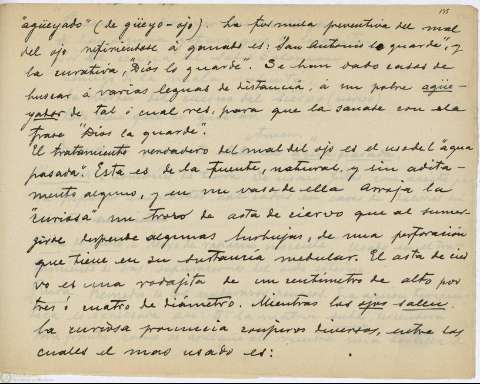 "agüeyado" (de güeyo-ojo). La formula preventiva del mal
del ojo refiriendose á ganado es: "San Antonio lo guarde", y
la curativa, "Dios lo guarde". Se han dado casos de
buscar á varias leguas de distancia, á un pobre agüe-
yador de tal ó cual res, para que la sanase con ela
frase "Dios la guarde".
El tratamiento verdadero del mal del ojo es el uso del "agua
pasada". Esta es de la fuente, natural, y sin adita-
mento alguno, y en un vaso de ella arroja la
"curiosa" un trozo de asta de ciervo que al sumer-
girse desprende algunas burbujas, de una perforación
que tiene en su sustancia medular. El asta de cier-
vo es una rodajita de un centímetro de alto por
tres ó cuatro de diámetro. Mientras los ojos salen
la curiosa pronuncia conjuros diversos, entre los
cuales el mas usado es: